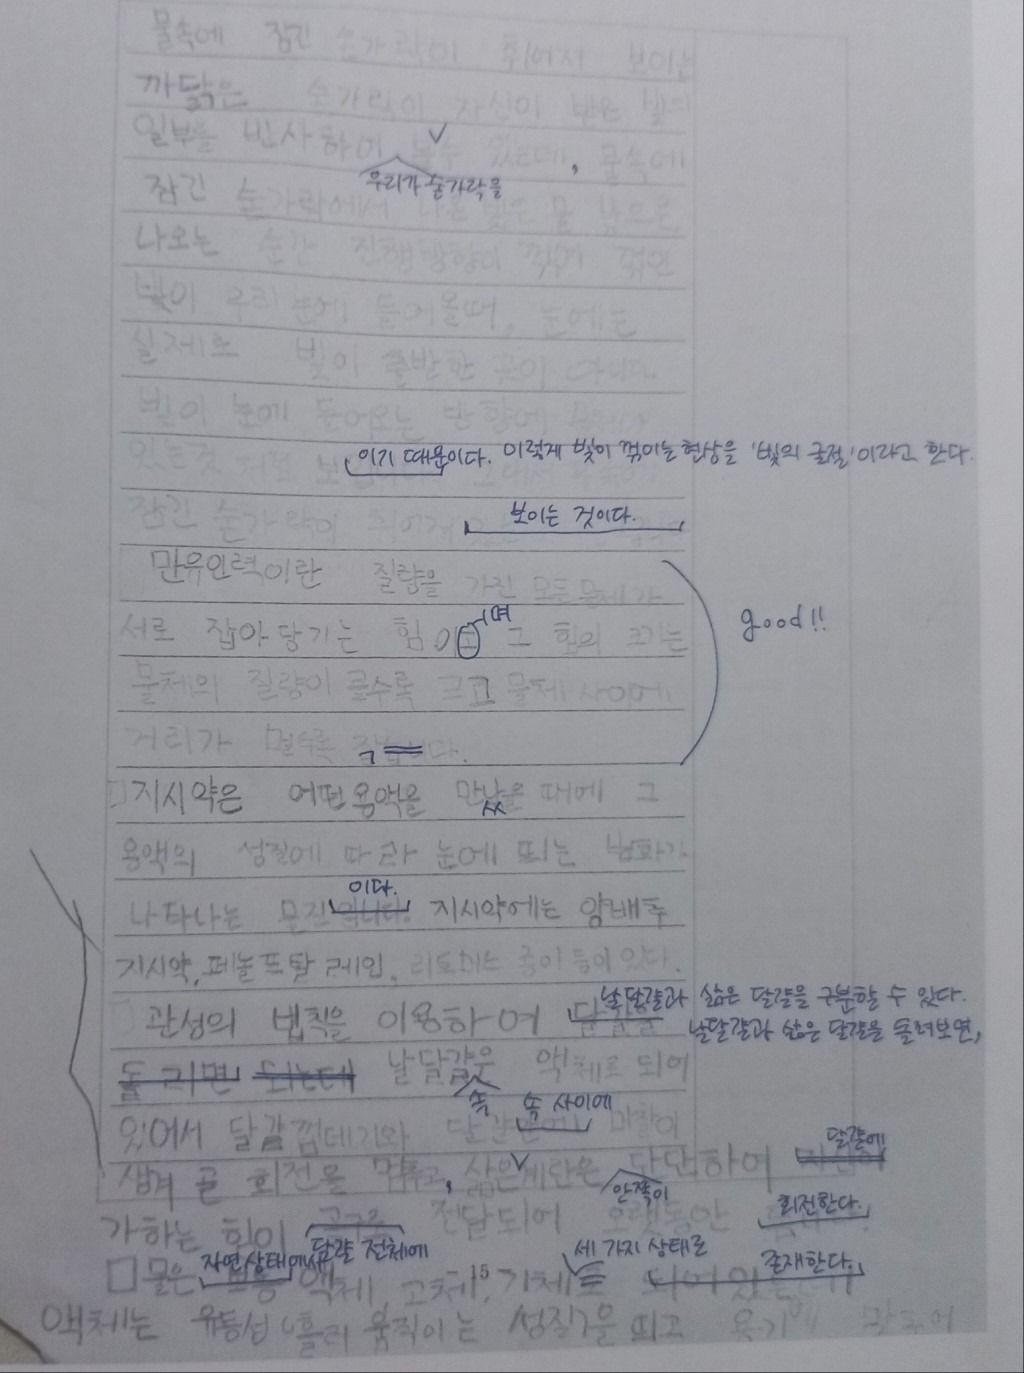 물속에 잠긴 숟가락이 휘어져 보이는
까닭은 숟가락이 자신이 받은 빛의
일부를 반사하여 볼 수 있는데, 물속에
우리가 숟가락을
잠긴 숟가락에서 나온 빛은 물 밖으로
나오는 순간 진행방향이 꺾여 꺾인
빛이 우리 눈에 들어올때, 눈에는
실제로 빛이 출발한 곳이 아니라
빛이 눈에 들어오는 방향에
있는것 이기 때문이다. 이렇게 빛이 꺾이는 현상을 '빛의 굴절'이라고 한다.
잠긴 숟가락이 휘어져 보이는 것이다.
만유인력이란 질량을 가진 모든 물체가
서로 잡아당기는 힘이고 며 그 힘의 크기는
good!!
물체의 질량이 클수록 크고 물체 사이에
거리가 멀수록 작
지시약은 어떤용액을 만났을 때에 그
용액의 성질에 따라 눈에 띄는 변화가
나타나는 물질입니다. 이다. 지시약에는 양배추
지시약, 페놀프탈레인, 리트머스 종이 등이 있다.
날달걀과 삶은 달걀을 구분할 수 있다.
관성의 법칙을 이용하여 날달걀과 삶은 달걀을 돌려보면,
돌리면 되는데 날달걀은 액체로 되어
속 속 사이에
있어서 달걀 껍데기와 달걀 마찰이
생겨 곧 회전을 멈추고, 삶은계란은 단단하여 달걀에
안쪽이
가하는 힘이 전달되어 오랫동안 회전한다.
달걀 전체에
자연상태에서 세 가지 상태로 존재한다.
물은 보통 액체, 고체, 기체로 되어있
액체는 유동성(흘러 움직이는 성질)을 띄고 용기